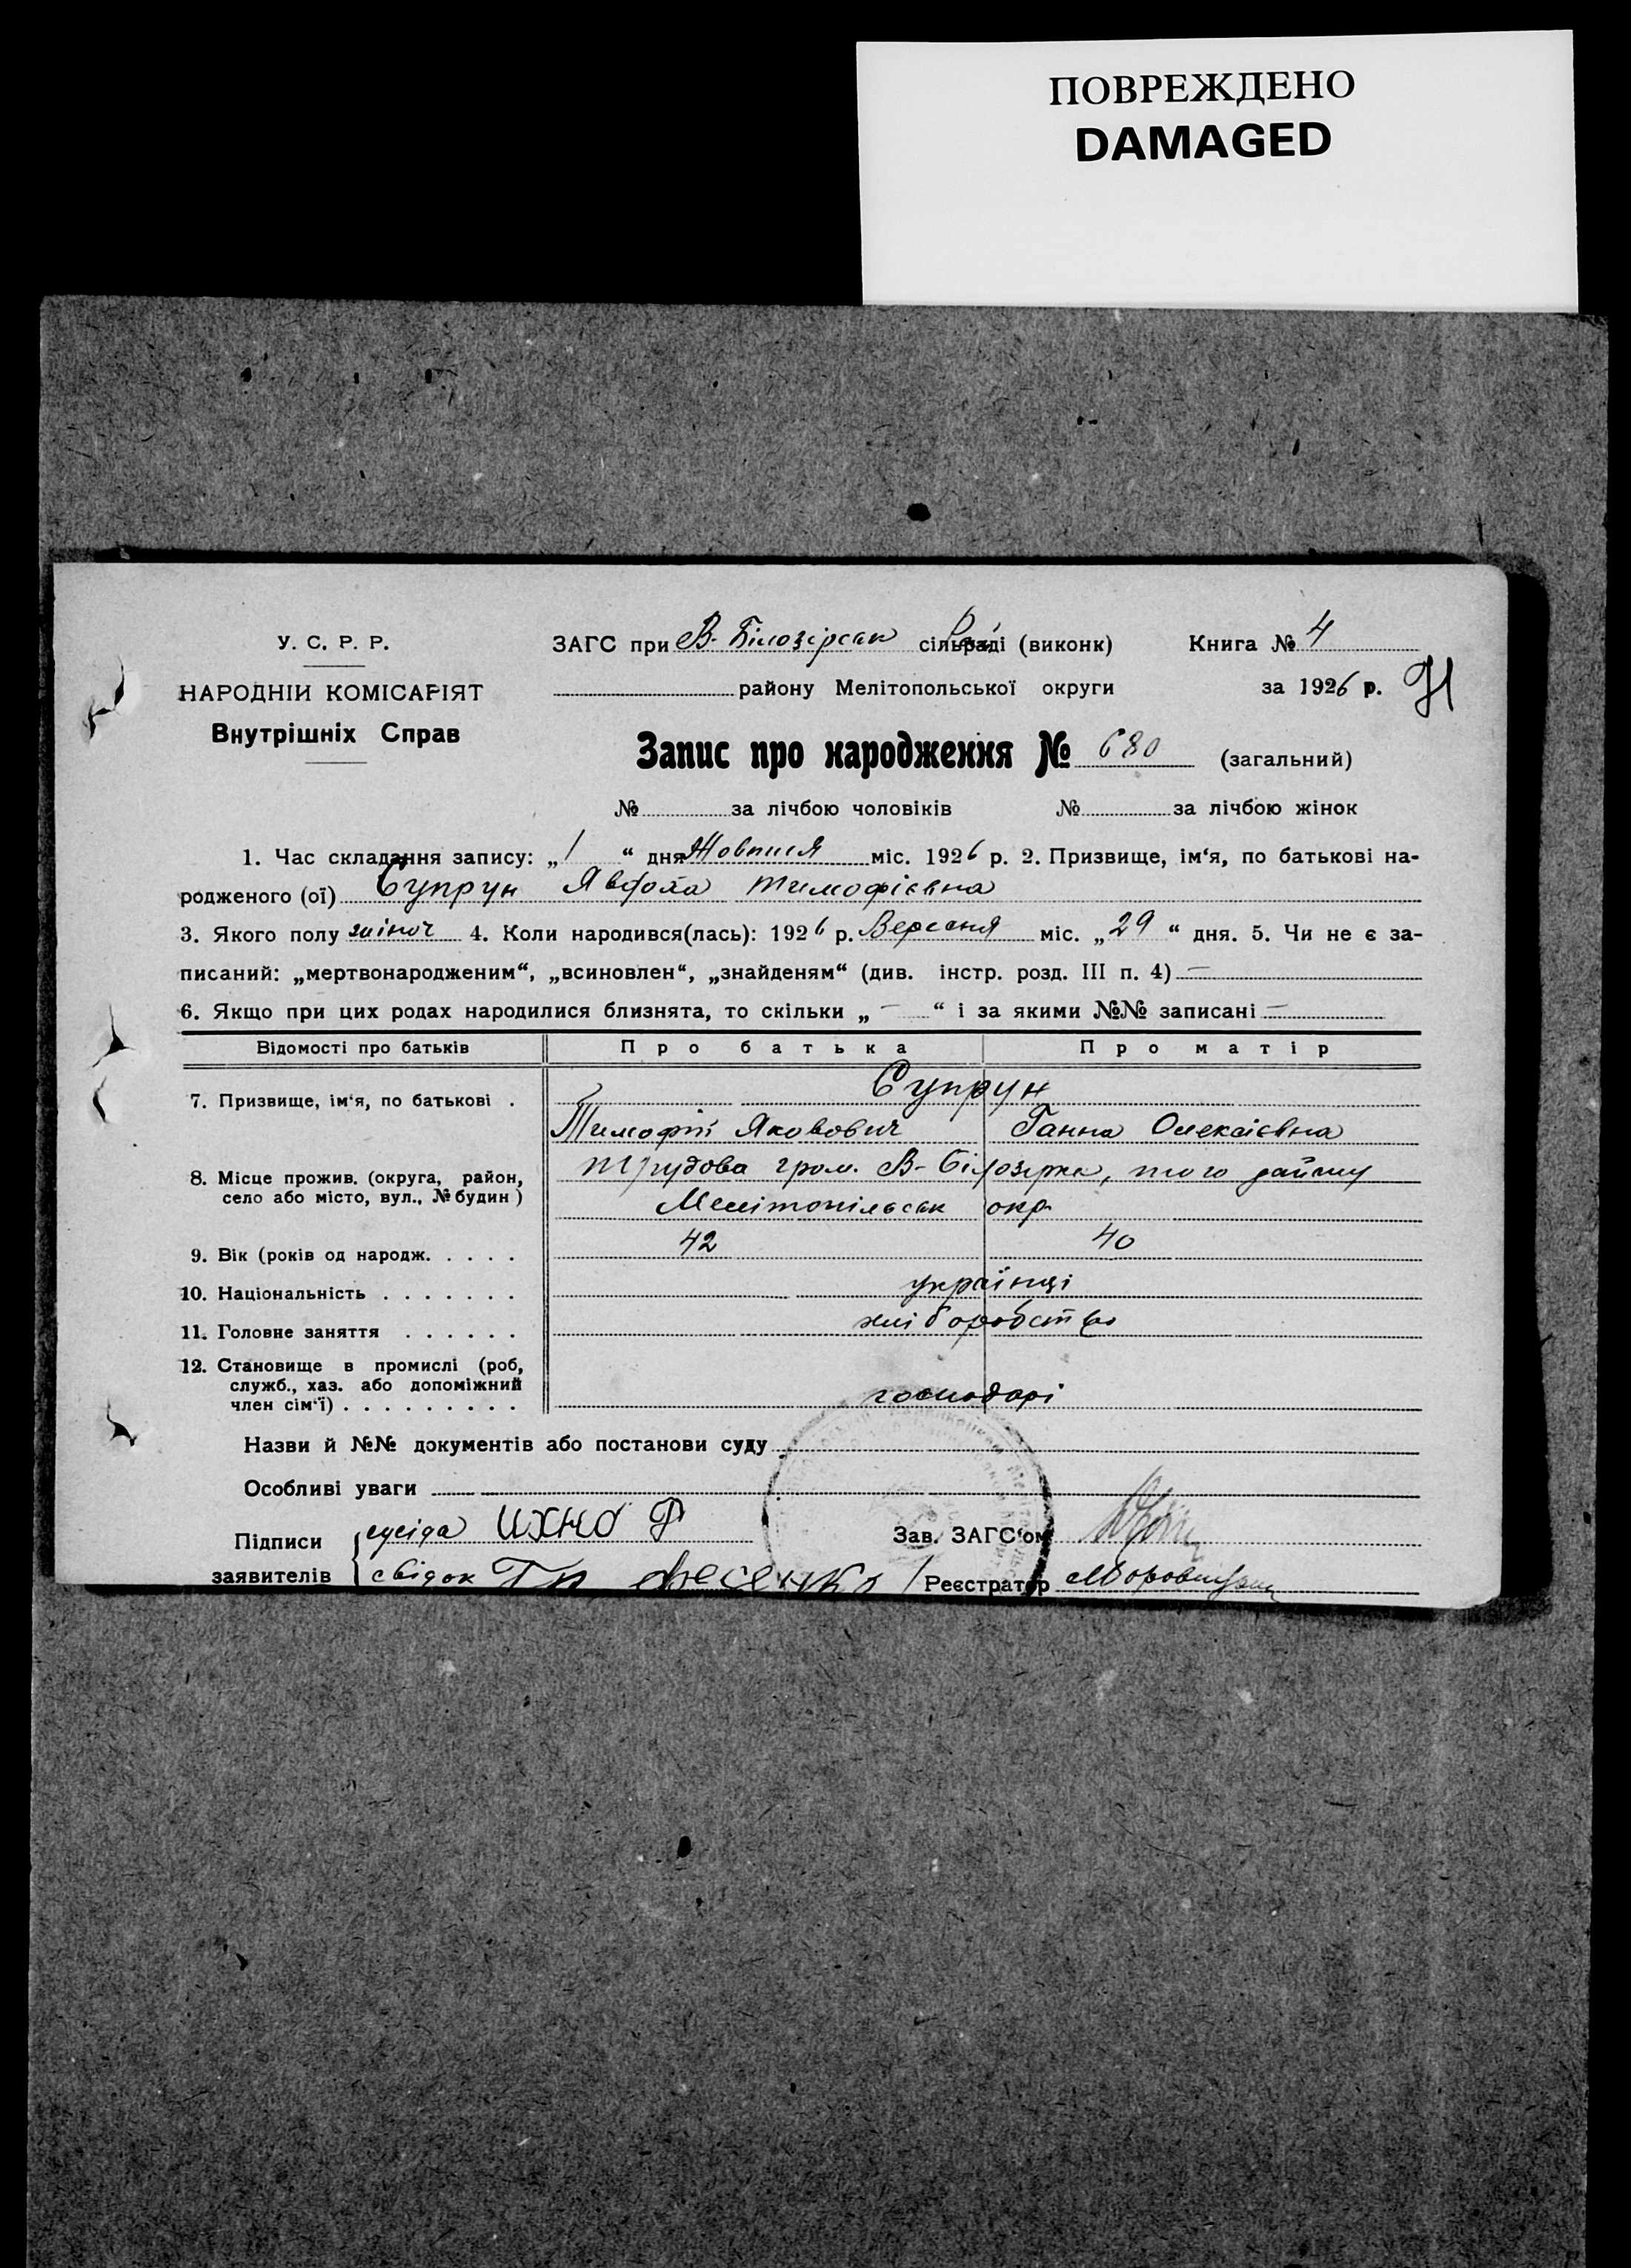 ПОВРЕЖДЕНО
DAMAGED
У. С. Р. Р.
НАРОДНІЙ КОМІСАРІЯТ
Внутрішніх Справ
ЗАГС при В-Білозірськ сільраді (виконк) Книга № 4
району Мелітопольської округи за 1926 р.
Запис про народження № 680 (загальний)
№ за лічбою чоловіків № за лічбою жінок
1. Час складання запису: „1“ дня Жовтня міс. 1926 р. 2. Призвище, ім‘я, по батькові на-
родженого (ої) Супрун Явдоха Тимофієвна
3. Якого полу жіноч 4. Коли народився(лась): 1926 р. Вересня міс. „29“ дня. 5. Чи не є за-
писаний: „мертвонародженим“, „всиновлен“, „знайденям“ (див. інстр. розд. III п. 4) —
6. Якщо при цих родах народилися близнята, то скільки „ — “ і за якими №№ записані —
Відомості про батьків Про батька Про матір
7. Призвище, ім‘я, по батькові . Супрун
Тимофій Якович Ганна Олексієвна
8. Місце прожив. (округа, район, село або місто, вул., № будин ) Трудова гром. В-Білозірка, того району
Мелітопільськ окр.
9. Вік (років од народж. . . . . 42 40
10. Національність . . . . . . . українці
11. Головне заняття . . . . . . хліборобство
12. Становище в промислі (роб, служб., хаз. або допоміжний член сім‘ї) . . . . . . . . . господарі
Назви й №№ документів або постанови суду
Особливі уваги
Підписи сусіда ИХНО Ф Зав. ЗАГС‘ом
заявителів свідок Реєстратор